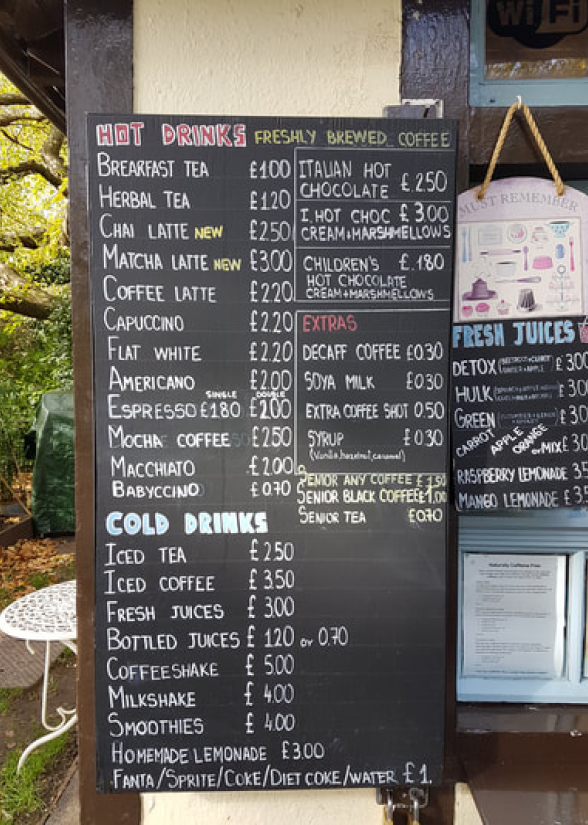 WiFi
HOT DRINKS FRESHLY BREWED COFFEE
BREAKFAST TEA £1.00
HERBAL TEA £1.20
CHAI LATTE NEW £2.50
MATCHA LATTE NEW £3.00
COFFEE LATTE £2.20
CAPUCCINO £2.20
FLAT WHITE £2.20
AMERICANO £2.00
SINGLE DOUBLE
ESPRESSO £1.80 £2.00
MOCHA COFFEE £2.50
MACCHIATO £2.00
BABYCCINO £0.70
ITALIAN HOT
CHOCOLATE £2.50
I. HOT CHOC £3.00
CREAM+MARSHMELLOWS
CHILDREN'S £1.80
HOT CHOCOLATE
CREAM+MARSHMELLOWS
EXTRAS
DECAFF COFFEE £0.30
SOYA MILK £0.30
EXTRA COFFEE SHOT 0.50
SYRUP £0.30
(Vanilla, hazelnut, caramel)
SENIOR ANY COFFEE £1.50
SENIOR BLACK COFFEE £1.00
SENIOR TEA £0.70
COLD DRINKS
ICED TEA £2.50
ICED COFFEE £3.50
FRESH JUICES £3.00
BOTTLED JUICES £1.20 or 0.70
COFFEESHAKE £5.00
MILKSHAKE £4.00
SMOOTHIES £4.00
HOMEMADE LEMONADE £3.00
FANTA/SPRITE/COKE/DIET COKE/WATER £1.
MUST REMEMBER
FRESH JUICES
DETOX £3.00
HULK £3.00
GREEN £3.0
CARROT APPLE ORANGE or MIX £3.0
RASPBERRY LEMONADE 3.5
MANGO LEMONADE £3.5
Naturally Caffeine Free